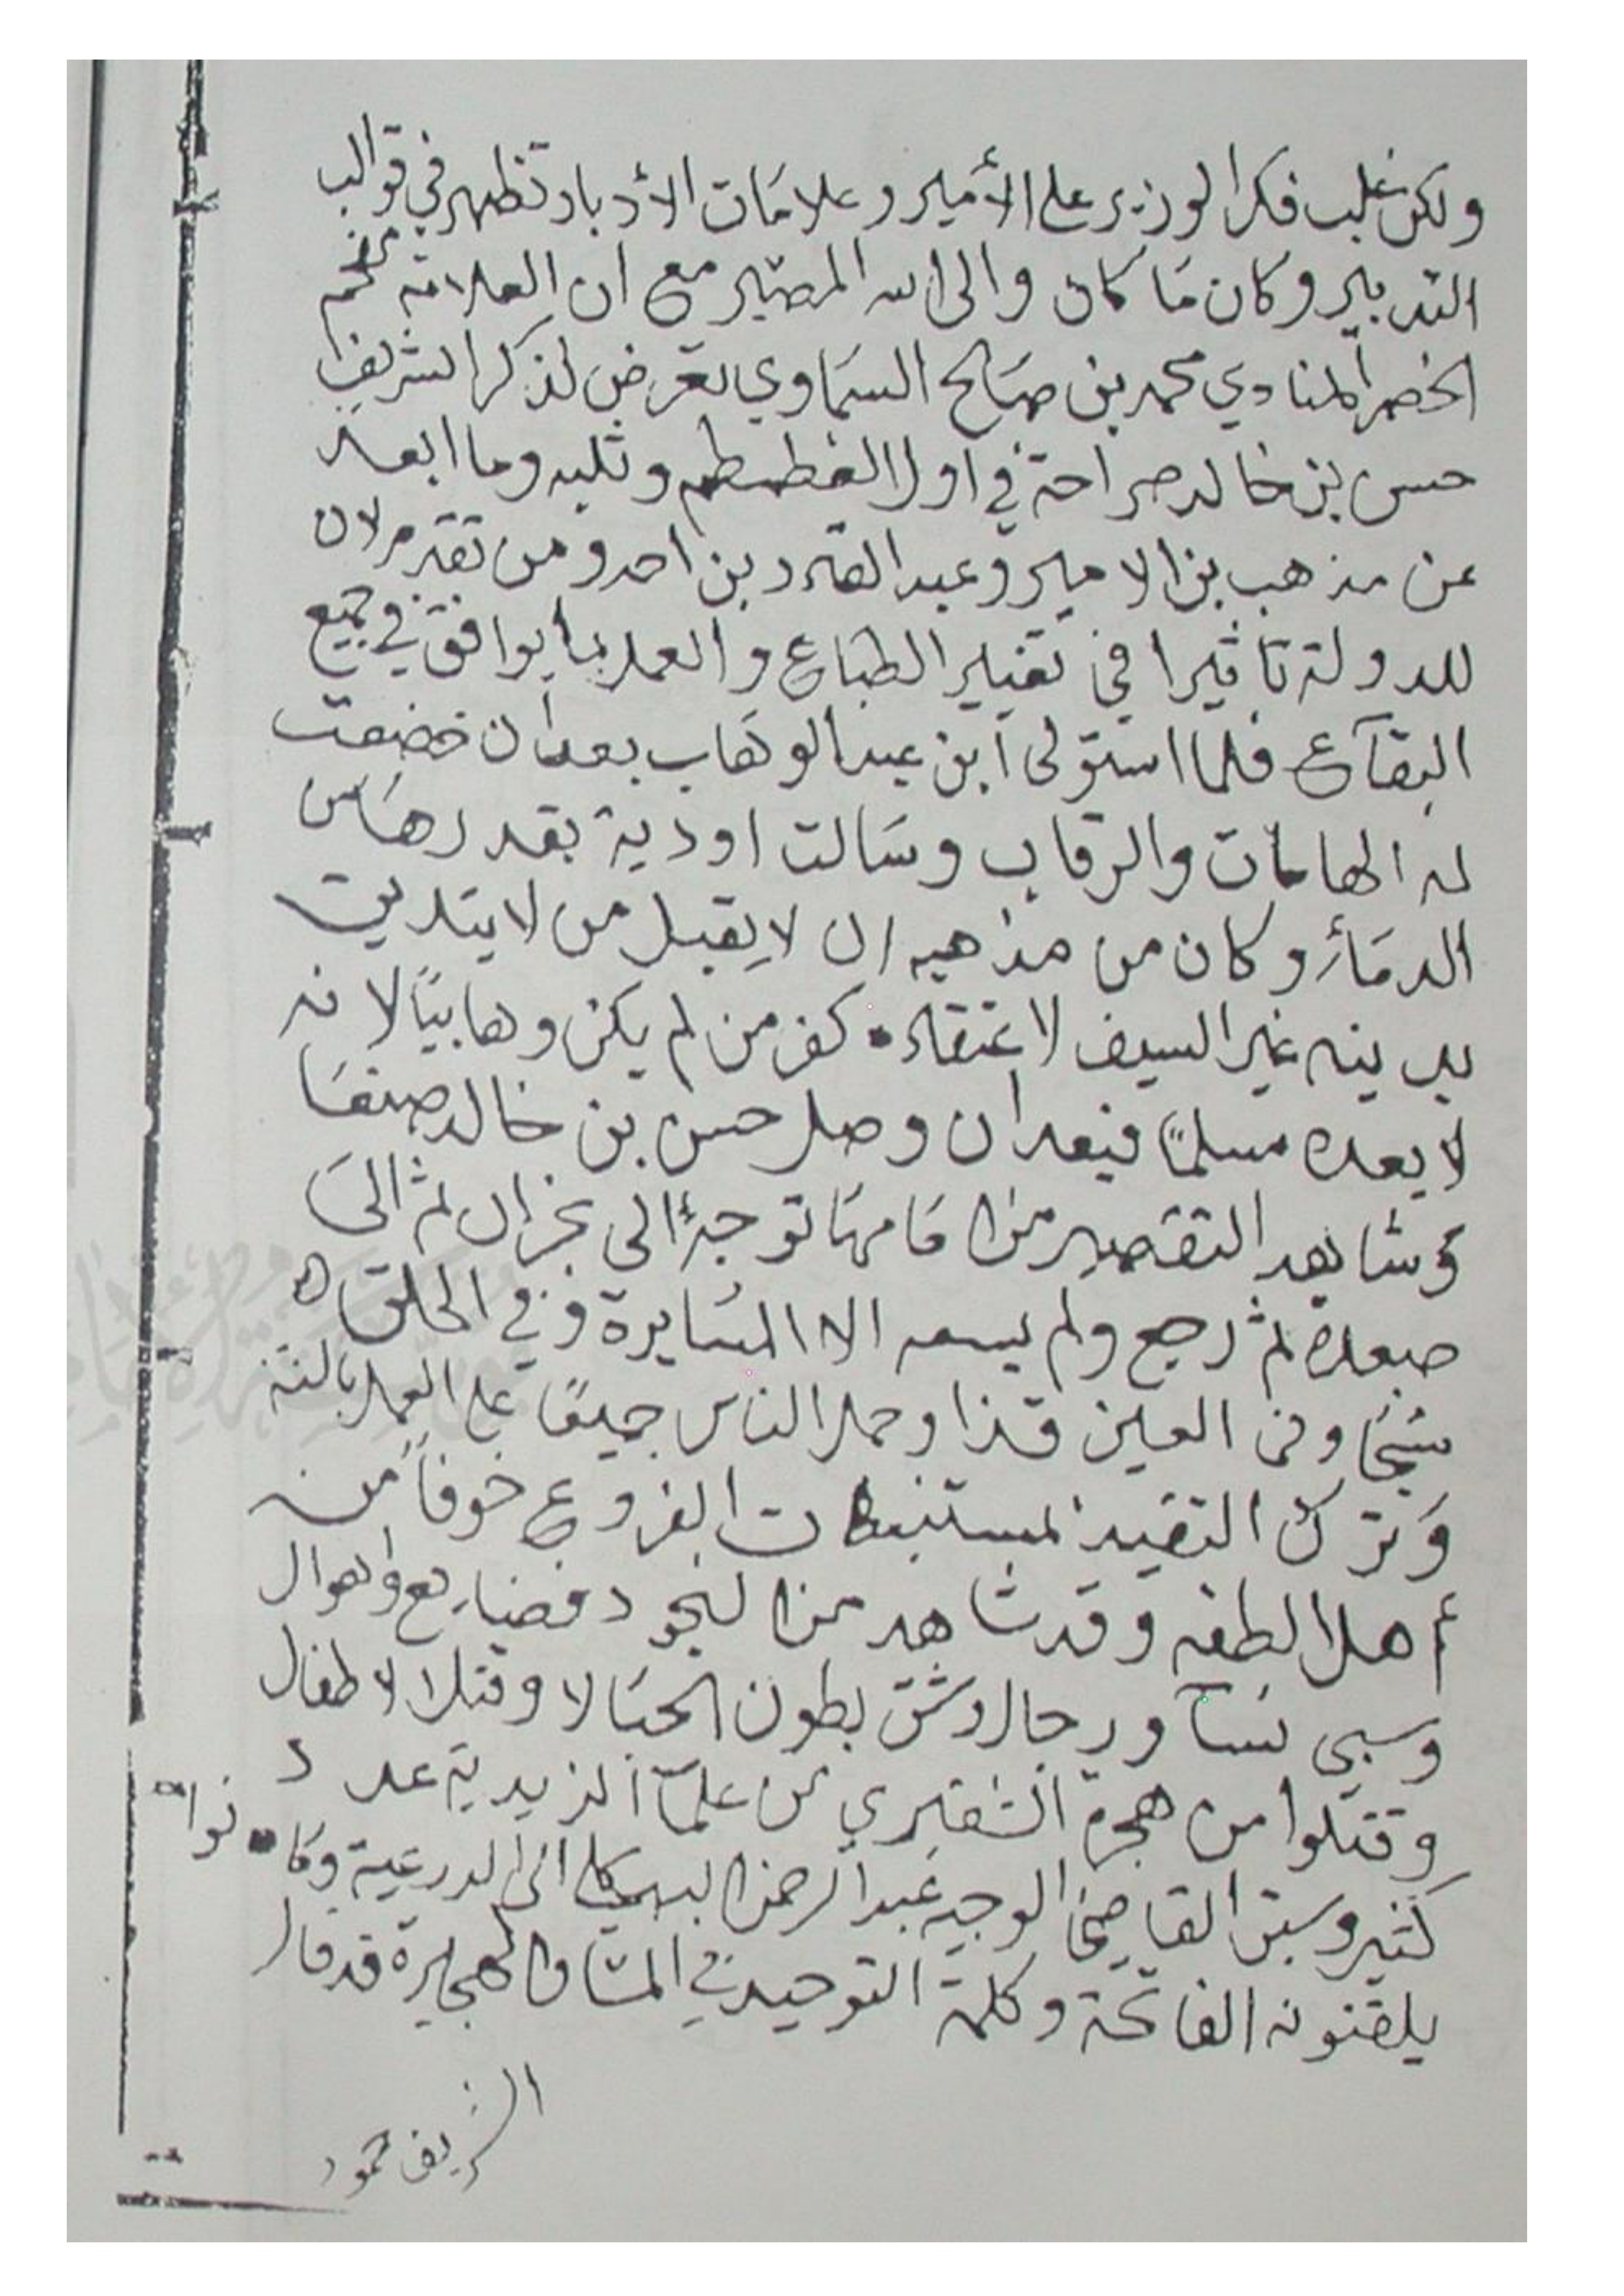 ولكن غلب فكر الوزير على الأمير وعلامات الأدبار تظهر في قوالب
التدبير وكان ما كان والى الله المصير مع ان العلامة
الخصم المناوي محمد بن صالح السماوي تعرض لذكر الشريف
حسن بن خالد صراحة في اول الغطمطم وثلبه وما ابعد
عن مذهب بن الامير وعبد القادر بن احمد ومن تقدم لان
للدولة تاثيرا في تغيير الطباع والعمل بما يوافق في جميع
البقآع فلما استولى ابن عبد الوهاب بعد ان خضعت
له الهامات والرقاب وسالت اودية بقدرها من
الدمآء وكان من مذهبه ان لا يقبل من لا يتديت
بدينه غير السيف لاعتقاد كفر من لم يكن وهابيًا لانه
لا يعده مسلمًا فبعد ان وصل حسن بن خالد صنعا
وشاهد التقصير من امامها توجه الى نجران ثم الى
صعدة ثم رجع ولم يسعه الا المسايرة وفي الحلق
شجا وفي العين قذا وحمل الناس جميعًا على العمل بالسنة
وترك التقيد بمستنبطات الفروع خوفاً من
أهل الطغيه وقد شاهد من النجود فضايع واهوال
وسبي نسآ ورجال وشق بطون الحبالا وقتل الاطفال
وقتلوا من هجرة الشقيري من علمآ الزيدية عدد
كثير وسيق القاضي الوجيه عبد الرحمن البهكلي الى الدرعية وكانوا
يلقنونه الفاتحة وكلمة التوحيد في المشا والهجيرة قد قال
الشريف حمود